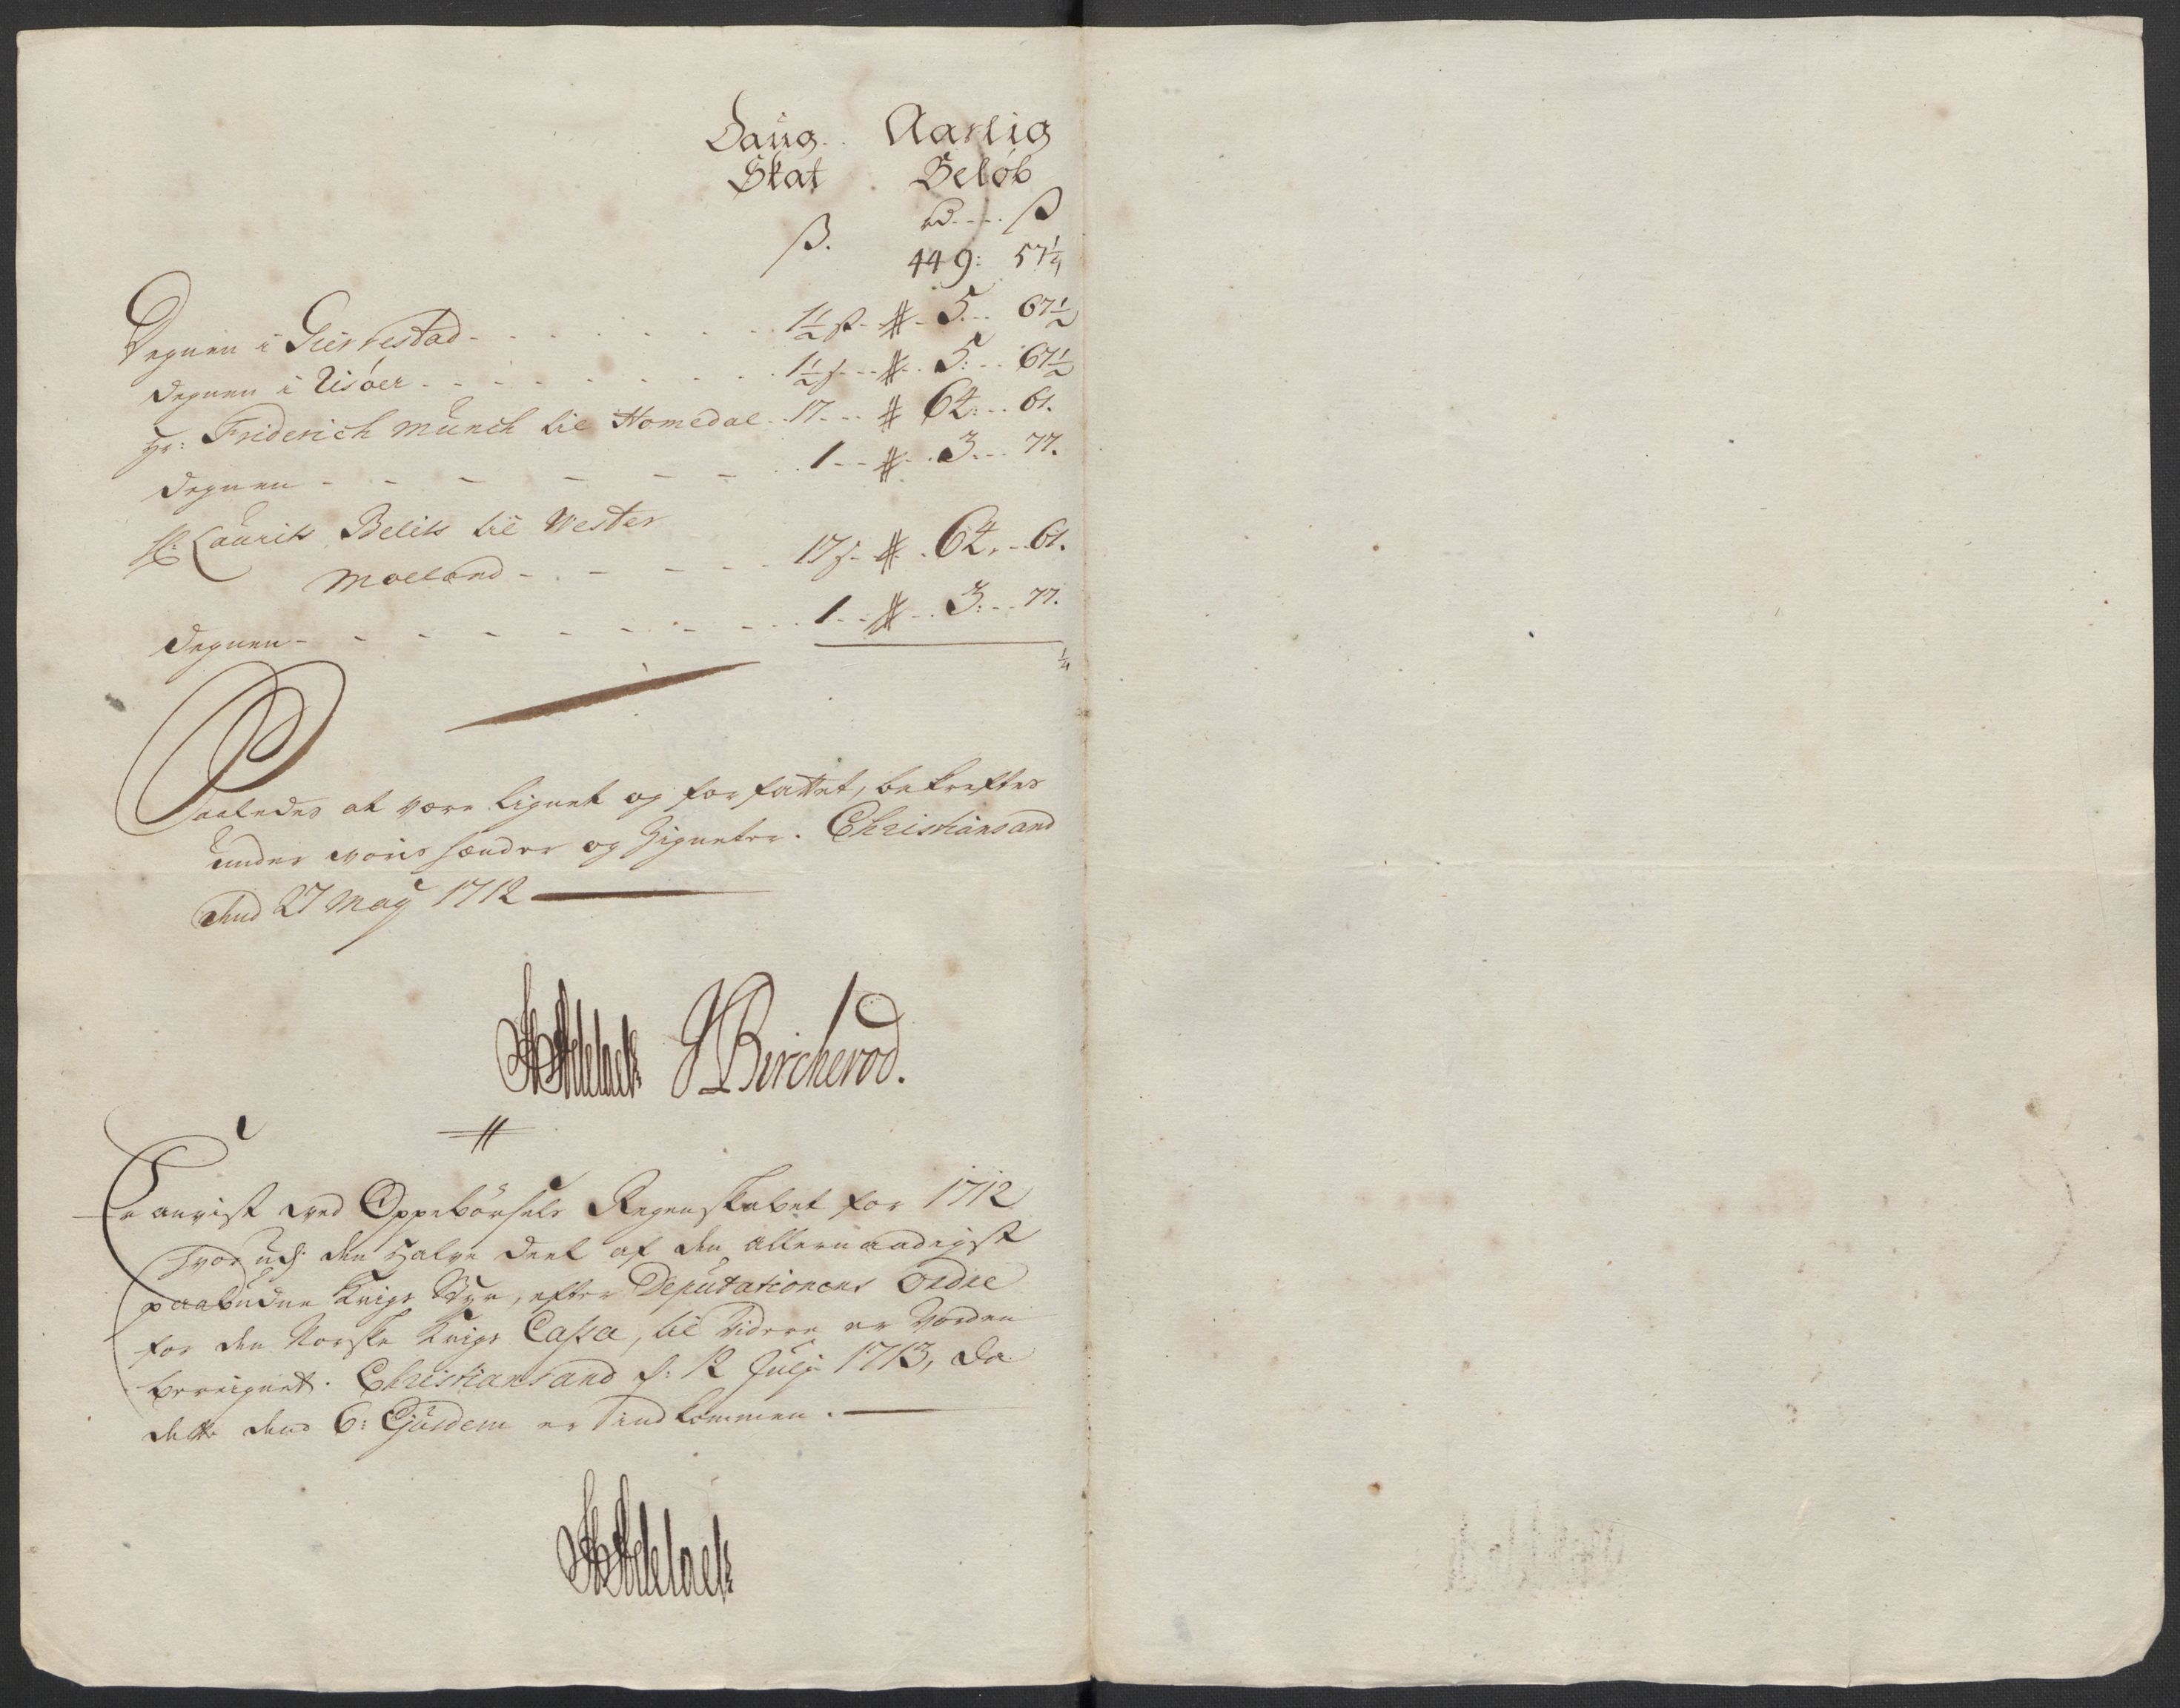 Daug. Aarlig
Skat Beløb
ß. rd. ... ß
449: 57¼
Degnen i Gierrestad - - - 1½ ß - # - 5... 67½
Degnen i Risöer - - - 1½ ß - # - 5:.. 67½
Hr: Friderich Münch til Homedal - 17 - # 64:.. 61.
Degnen - - - 1 - # - 3... 77.
Hr: Laurits Belits til Wester
Molland - - - 17 ß - # . 64. - 61.
Degnen - - - 1 - # - 3:.. 77.
¼
Saaledes at være lignet og forfattet, bekreftes
under voris hænder og Signeter. Christiansand
dend 27 May 1712
J Bircherod.
Er anvist ved Oppebörsels Regenskabet for 1712
hvor udj den halve deel af den allernaadigst
paabudne Krigs Styr, efter Deputationens Ordre
for den Norske Krigs Cassa, til Videre er Vorden
bereignet. Christiansand d: 12 Julj 1713, da
dette dend 6: Ejusdem er indkommen.